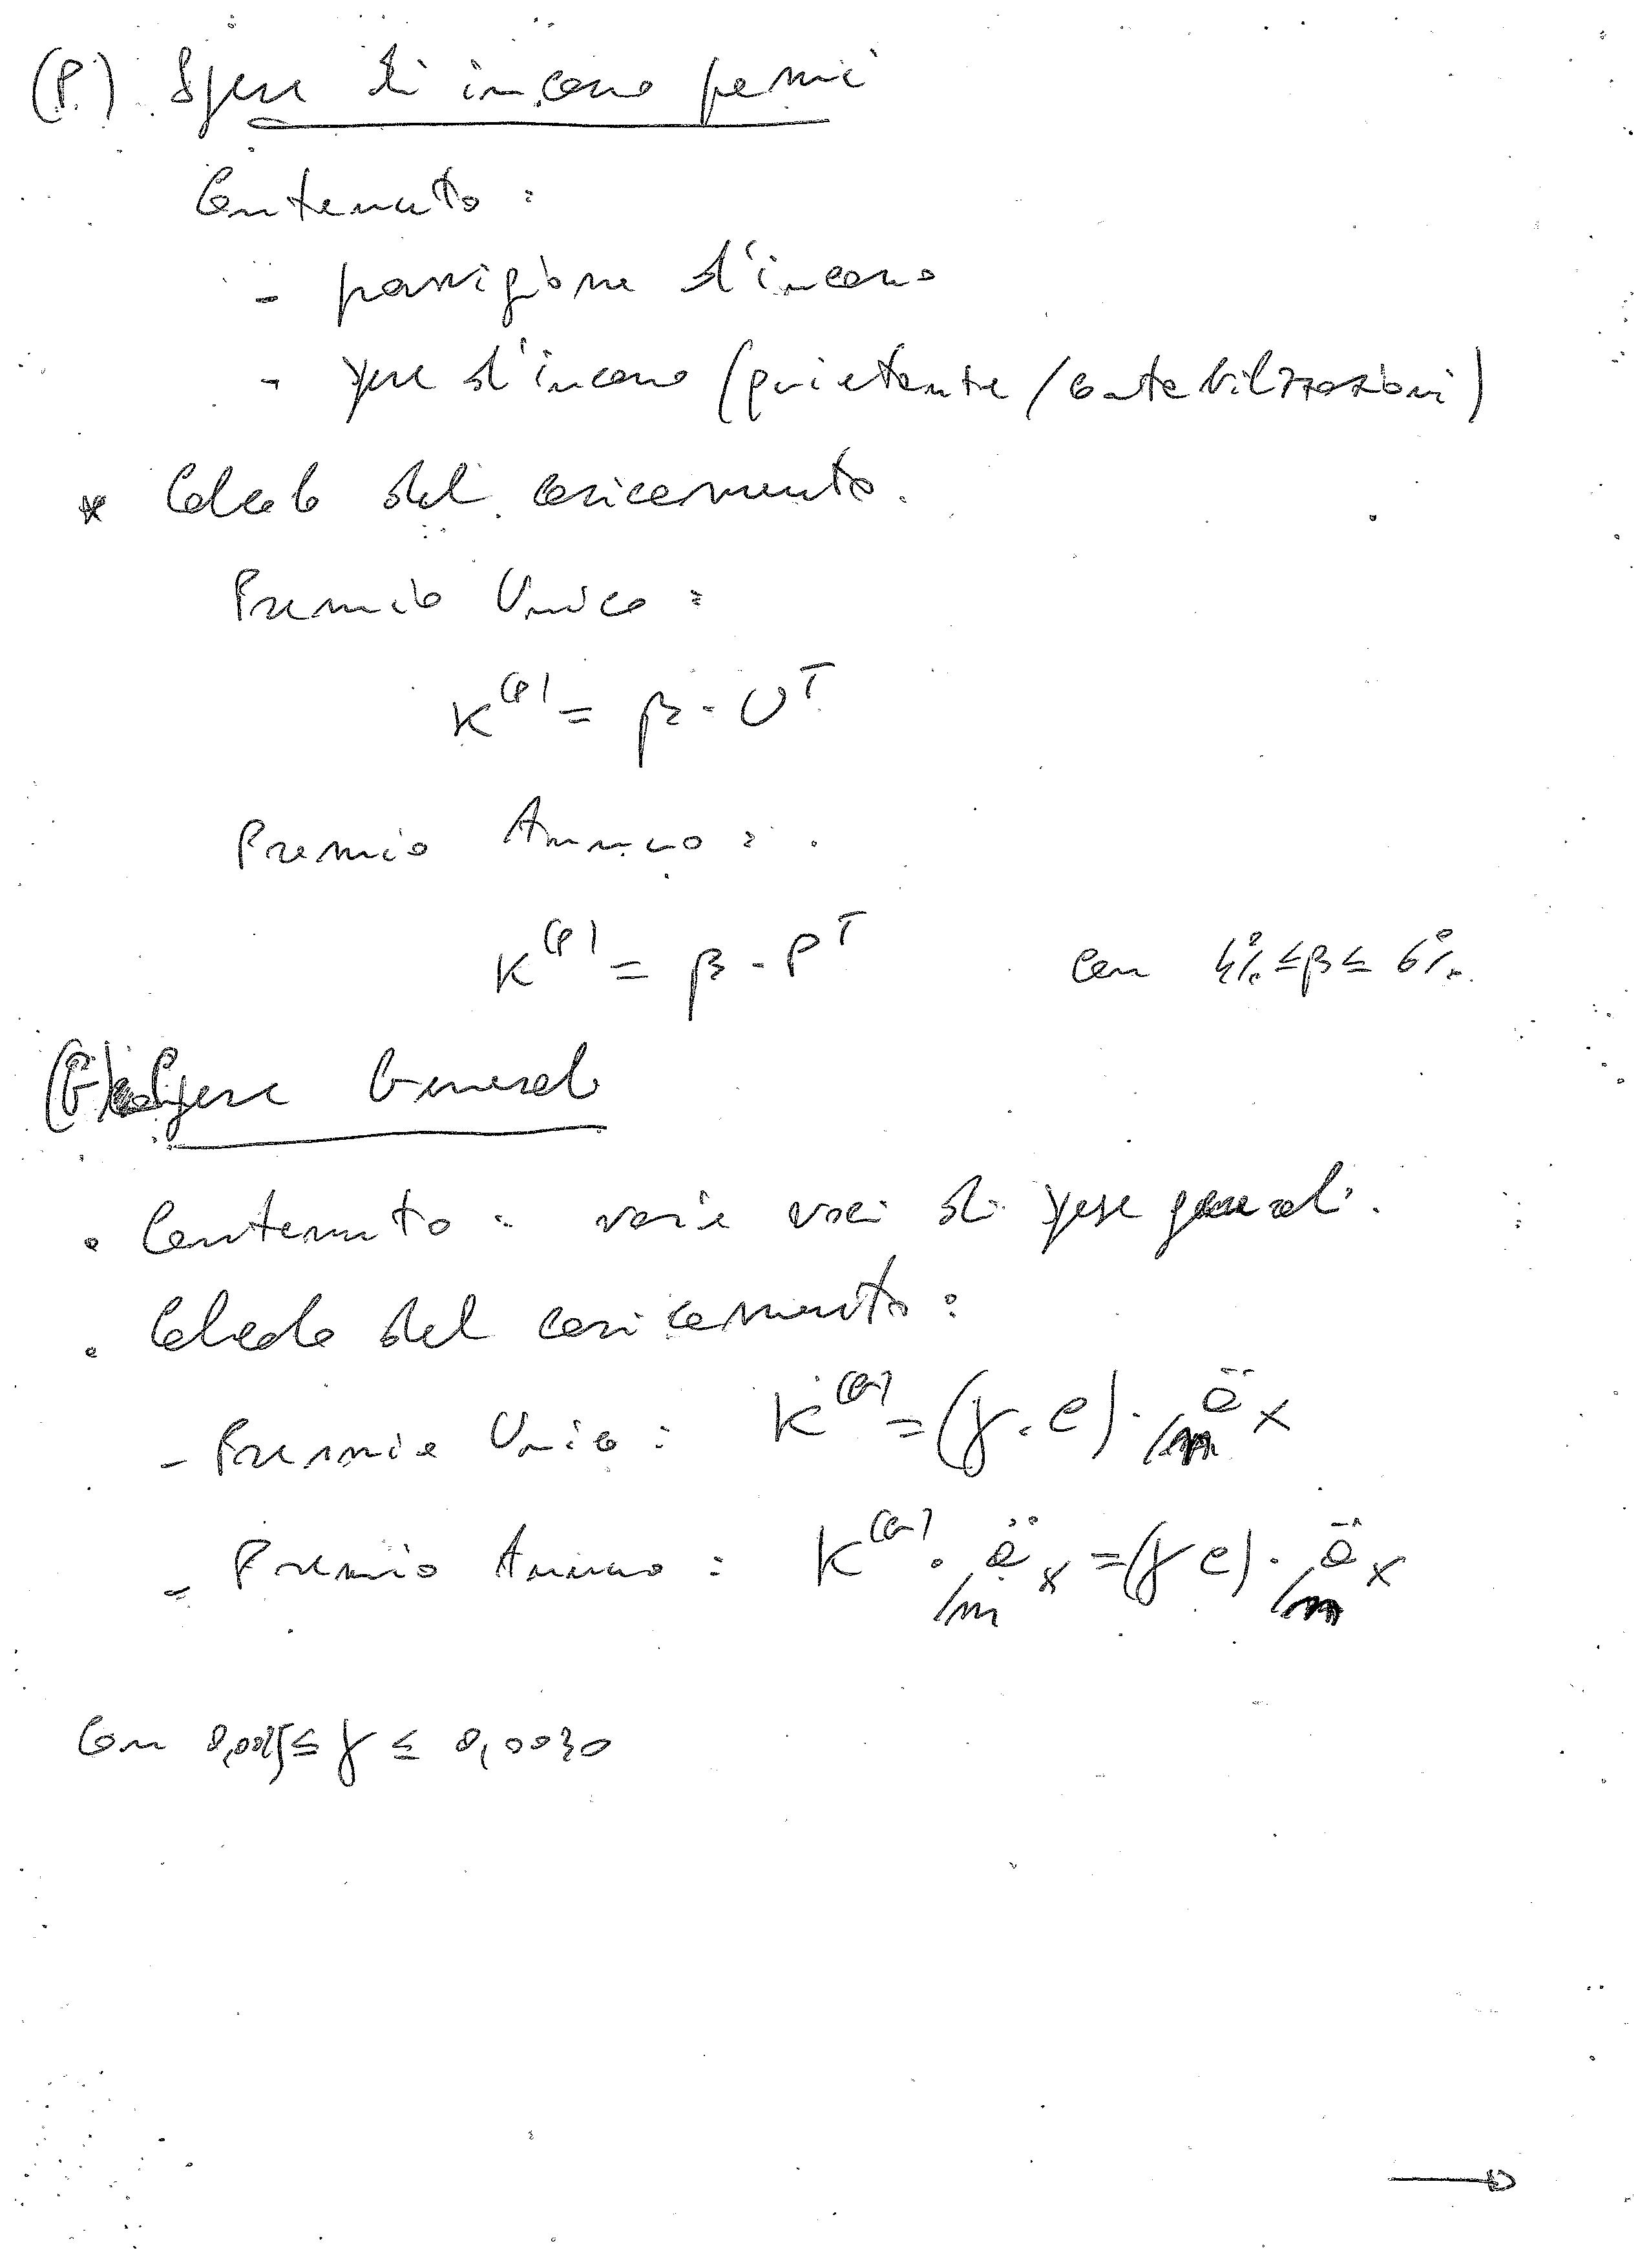 (P.) Spese di incasso premi
Contenuto :
- provvigione d'incasso
- spese d'incasso (quietanze / contabilizzazioni)
* Calcolo del caricamento.
Premio Unico :
K^(P) = β · U^T
Premio Annuo :
K^(P) = β · P^T con 4% ≤ β ≤ 6%.
(G) Spese Generali
• Contenuto : varie voci di spese generali.
• Calcolo del caricamento :
- Premio Unico : K^(G) = (γ · C) · /n ä x
- Premio Annuo : K^(G) · /m ä x = (γ C) · /n ä x
Con ≤ γ ≤ 0,0030